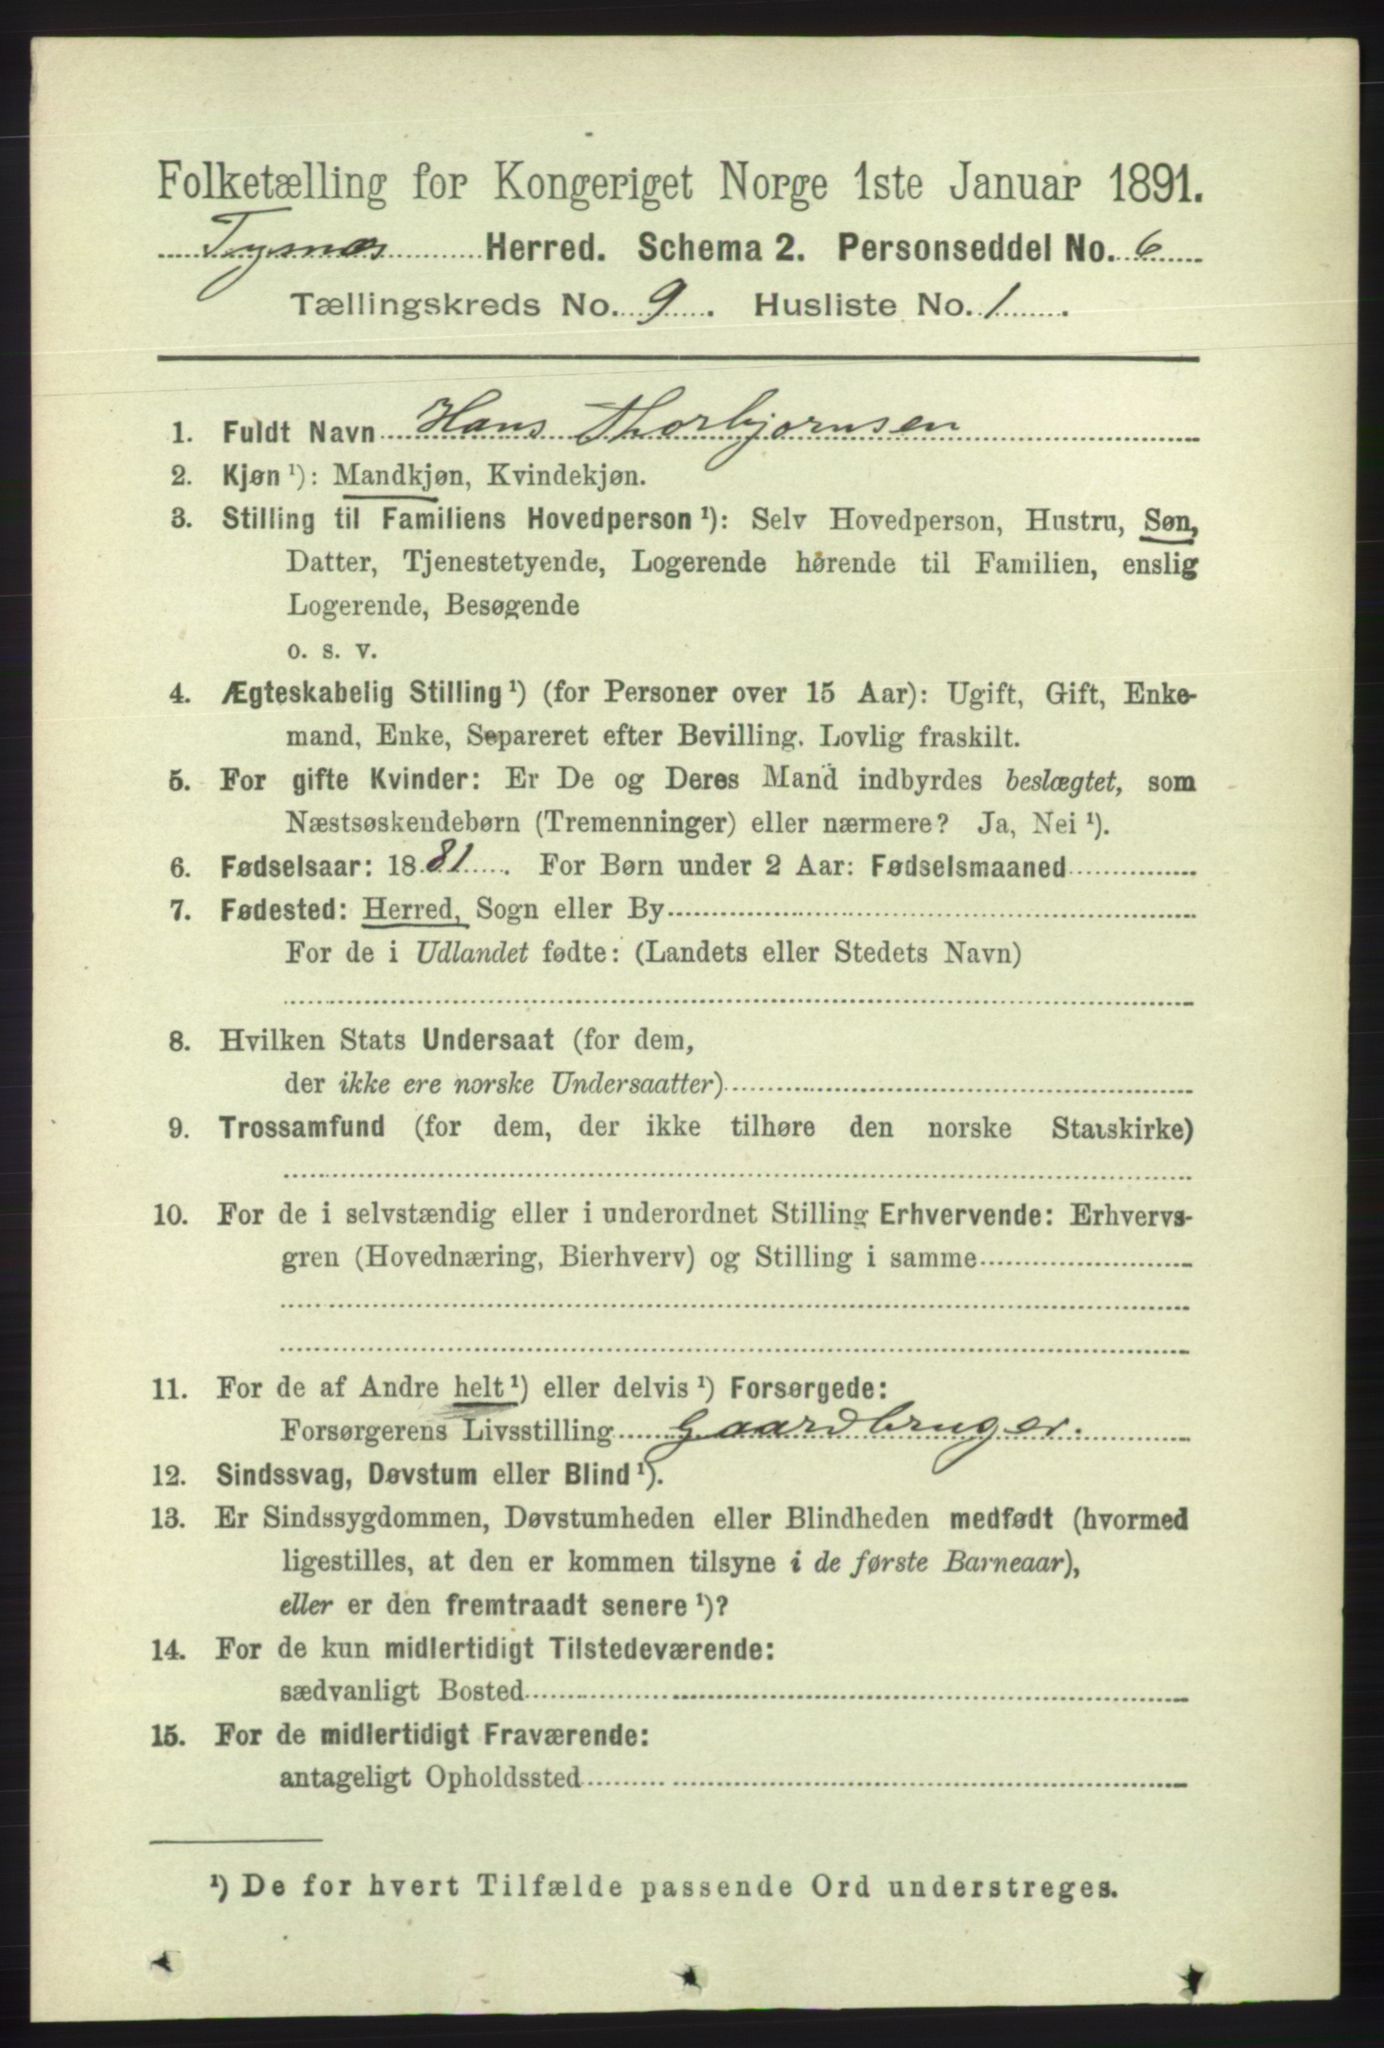 Folketælling for Kongeriget Norge 1ste Januar 1891.
Tysnæs Herred. Schema 2. Personseddel No. 6
Tællingskreds No. 9. Husliste No. 1.
1. Fuldt Navn Hans Thorbjornsen
2. Kjøn ¹): Mandkjøn, Kvindekjøn.
3. Stilling til Familiens Hovedperson ¹): Selv Hovedperson, Hustru, Søn,
Datter, Tjenestetyende, Logerende hørende til Familien, enslig
Logerende, Besøgende
o. s. v.
4. Ægteskabelig Stilling ¹) (for Personer over 15 Aar): Ugift, Gift, Enke-
mand, Enke, Separeret efter Bevilling. Lovlig fraskilt.
5. For gifte Kvinder: Er De og Deres Mand indbyrdes beslægtet, som
Næstsøskendebørn (Tremenninger) eller nærmere? Ja, Nei ¹).
6. Fødselsaar: 1881. For Børn under 2 Aar: Fødselsmaaned
7. Fødested: Herred, Sogn eller By
For de i Udlandet fødte: (Landets eller Stedets Navn)
8. Hvilken Stats Undersaat (for dem,
der ikke ere norske Undersaatter)
9. Trossamfund (for dem, der ikke tilhøre den norske Statskirke)
10. For de i selvstændig eller i underordnet Stilling Erhvervende: Erhvervs-
gren (Hovednæring, Bierhverv) og Stilling i samme
11. For de af Andre helt ¹) eller delvis ¹) Forsørgede:
Forsørgerens Livsstilling Gaardbruger.
12. Sindssvag, Døvstum eller Blind ¹).
13. Er Sindssygdommen, Døvstumheden eller Blindheden medfødt (hvormed
ligestilles, at den er kommen tilsyne i de første Barneaar),
eller er den fremtraadt senere ¹)?
14. For de kun midlertidigt Tilstedeværende:
sædvanligt Bosted
15. For de midlertidigt Fraværende:
antageligt Opholdssted
¹) De for hvert Tilfælde passende Ord understreges.